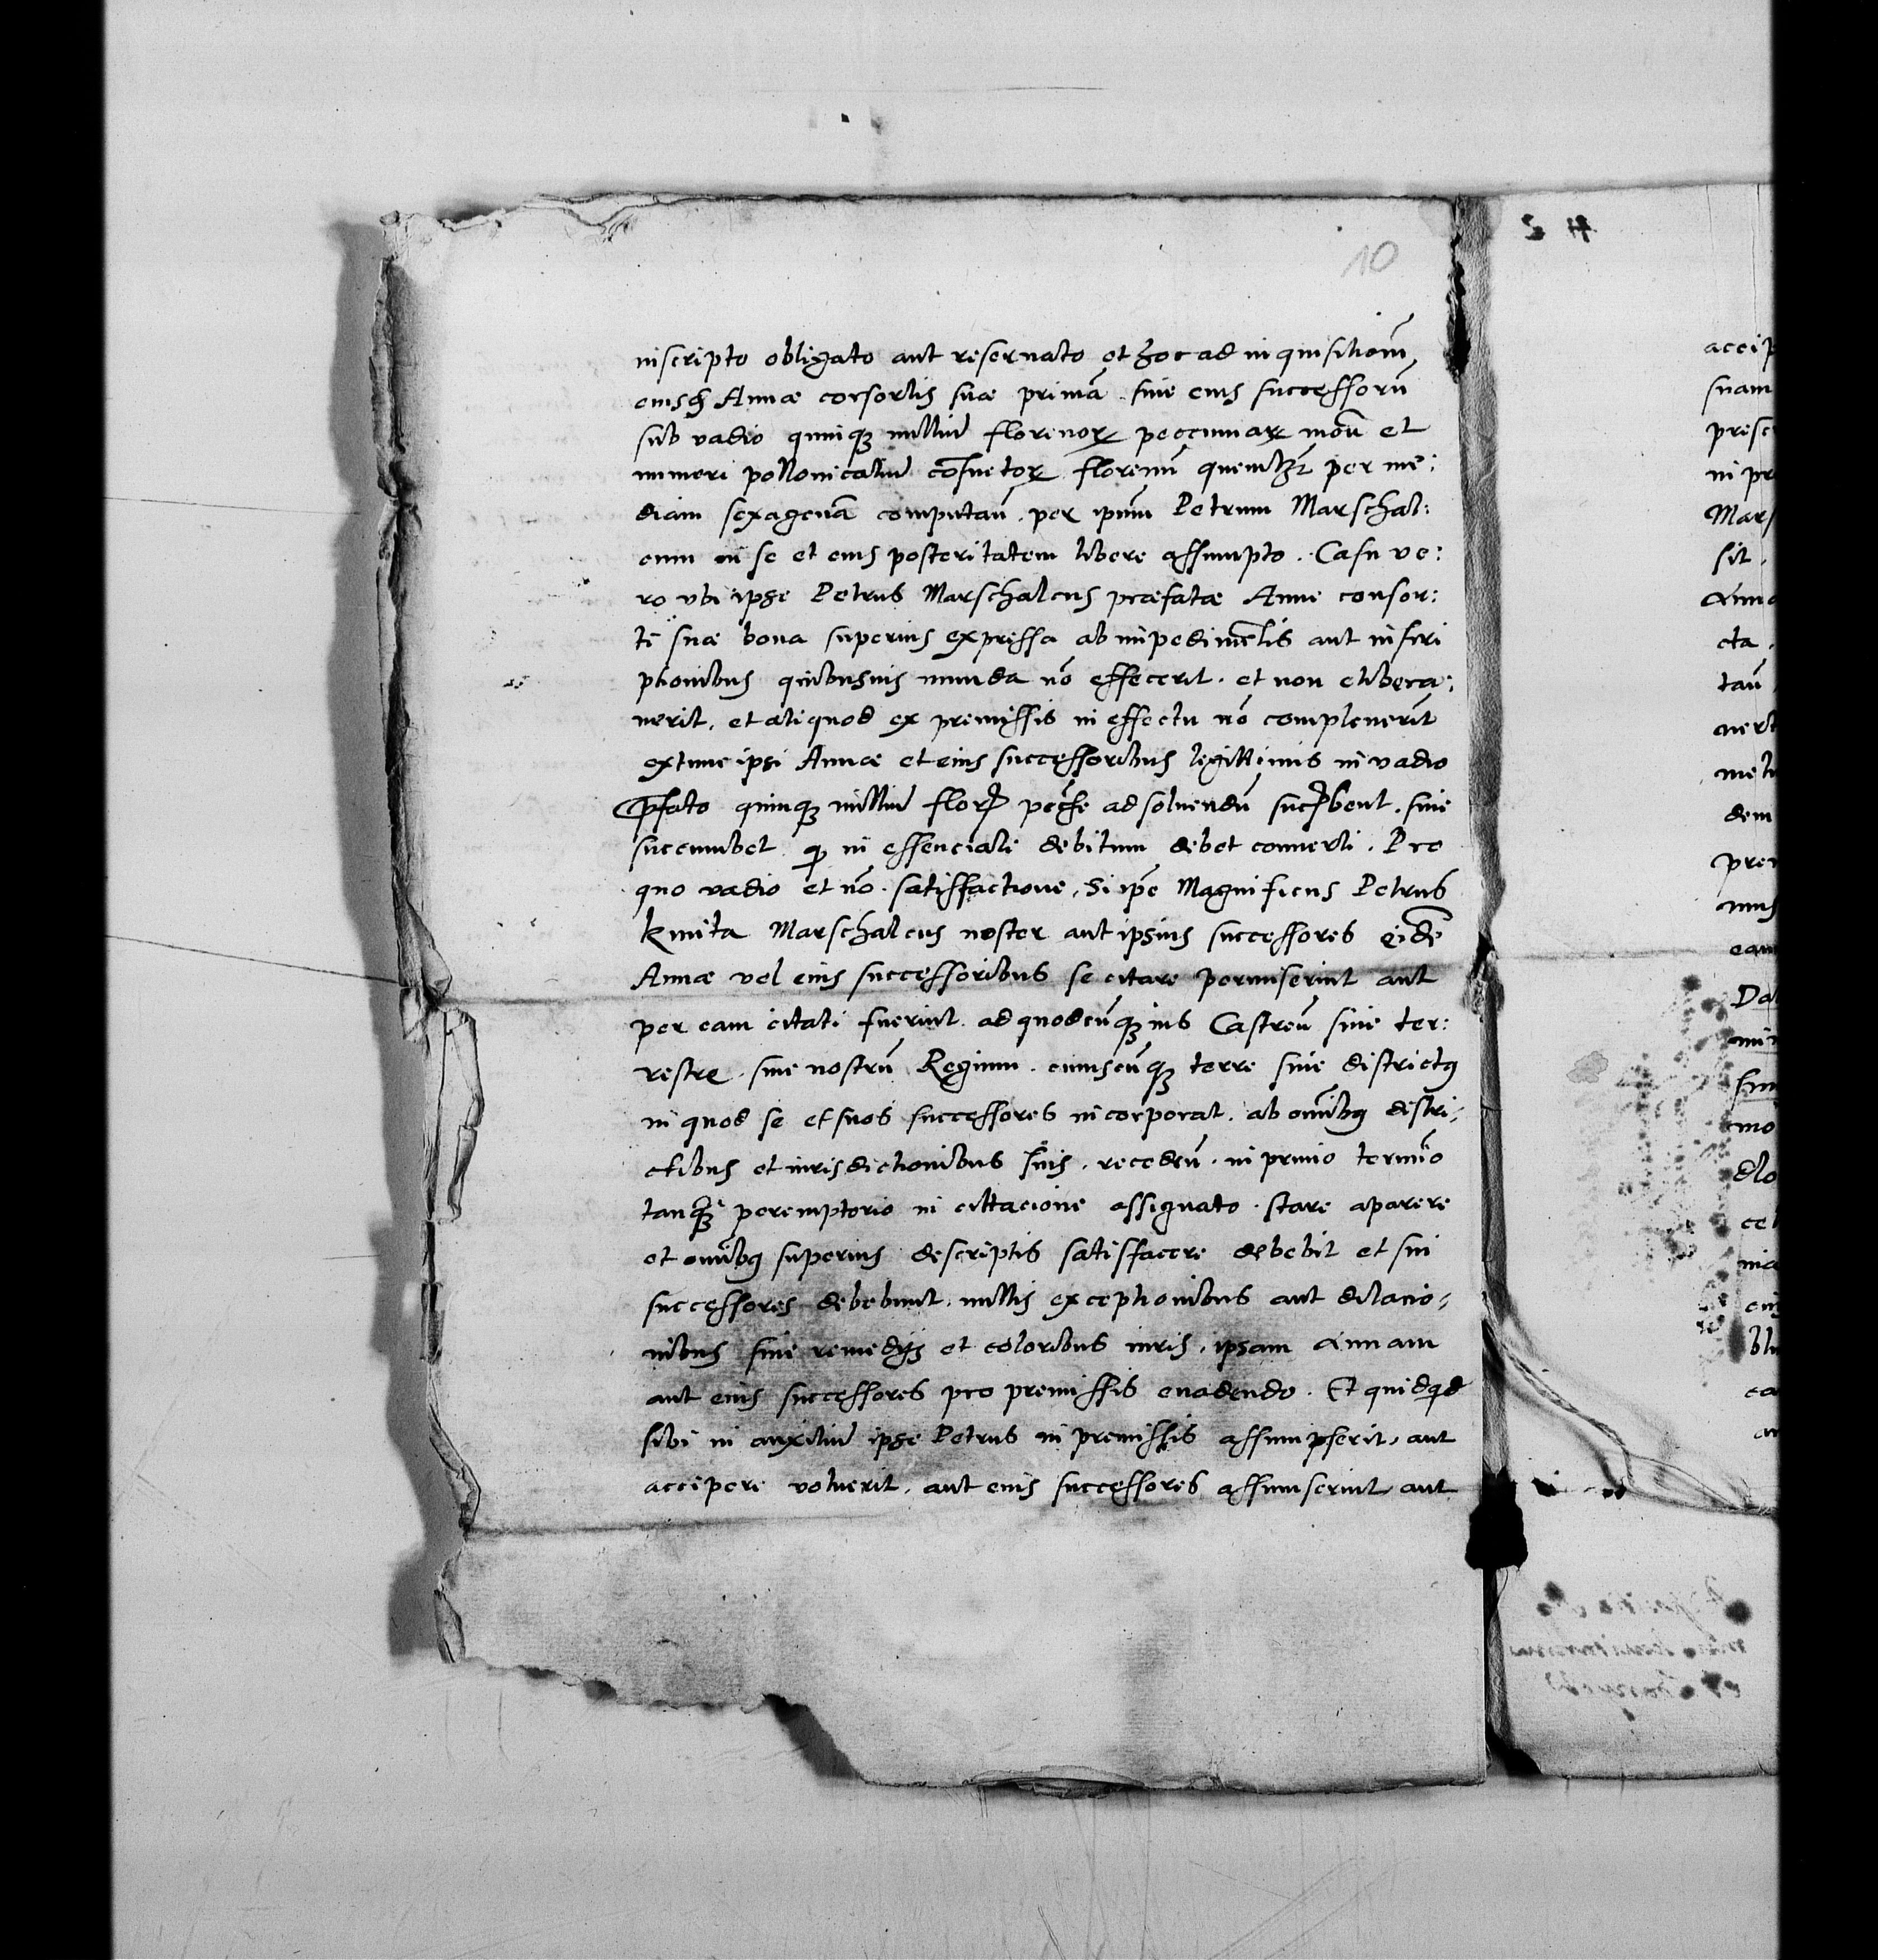 10
inscripto obligato aut reseruato et hoc ad inquisitionē
eiusdē Annæ consortis suæ primā siue eius successorū
sub vadio quinqꝫ milliū florenoꝝ peccuniaꝝ monē et
numeri pollonicaliū cōsuetoꝝ florenū quemlꝫt per me:
diam sexagenā computañ. per ipm̄ Petrum Marschal:
cum in se et eius posteritatem libere assumpto. Casu ve:
ro vbi ipse Petrus Marschalcus præfatæ Anne consor:
ti suæ bona superius expressa ab impedimētis aut inscri
ptionibus quibusuis munda nō effecerit. et non elibera:
uerit. et aliquod ex premissis in effectu nō compleuerit
extunc ipsi Annæ et eius successoribus legittimis in vadio
p̄fato quinqꝫ milliū flor̄ pecc̄e ad soluendū succūbent. siue
succumbet q̄ in essenciale debitum debet conuerti. Pro
quo vadio et nō satisfactione, Si ip̄e Magnificus Petrus
Kmita Marschalcus noster aut ipsius successores eidē
Annæ vel eius successoribus se citare permiserint aut
per eam citati fuerint. ad quodcūqꝫ ius Castreñ siue ter:
restre. siue nostrū Regium. cuiuscūqꝫ terre siue districtꝰ
in quod se et suos successores incorporat. ab om̄ibꝫ distri-
ctibus et iurisdictionibus suis. recedeñ. in primo termīo
tanqꝫ peremptorio in cittacione assignato. stare aparere
et om̄ibꝫ superius descriptis satisfacere debebit et sui
successores debebunt. nullis exceptionibus aut dilacio-
nibus siue remedijs et coloribus iuris. ipsam Annam
aut eius successores pro premissis euadendo. Et quidqđ
sibi in auxiliū ipse Petrus in premissis assumpserit, aut
accipere voluerit. aut eius successores assumserint aut
accip
suam
presc
in pr
Mars
sit.
Anna
cta.
tañ
uerit
dem
prem
eam
Dat